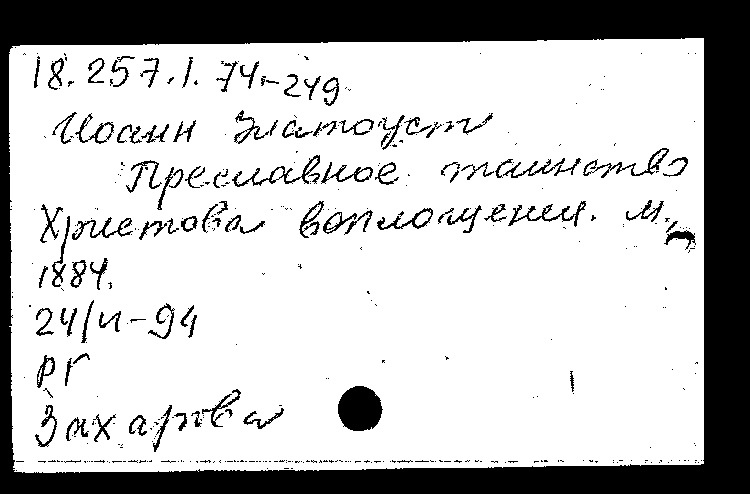 18.257.1.74-249
Иоанн Златоуст
Преславное таинство
Христова воплощения. М.,
1884.
24/II-94
РГ
Захарова